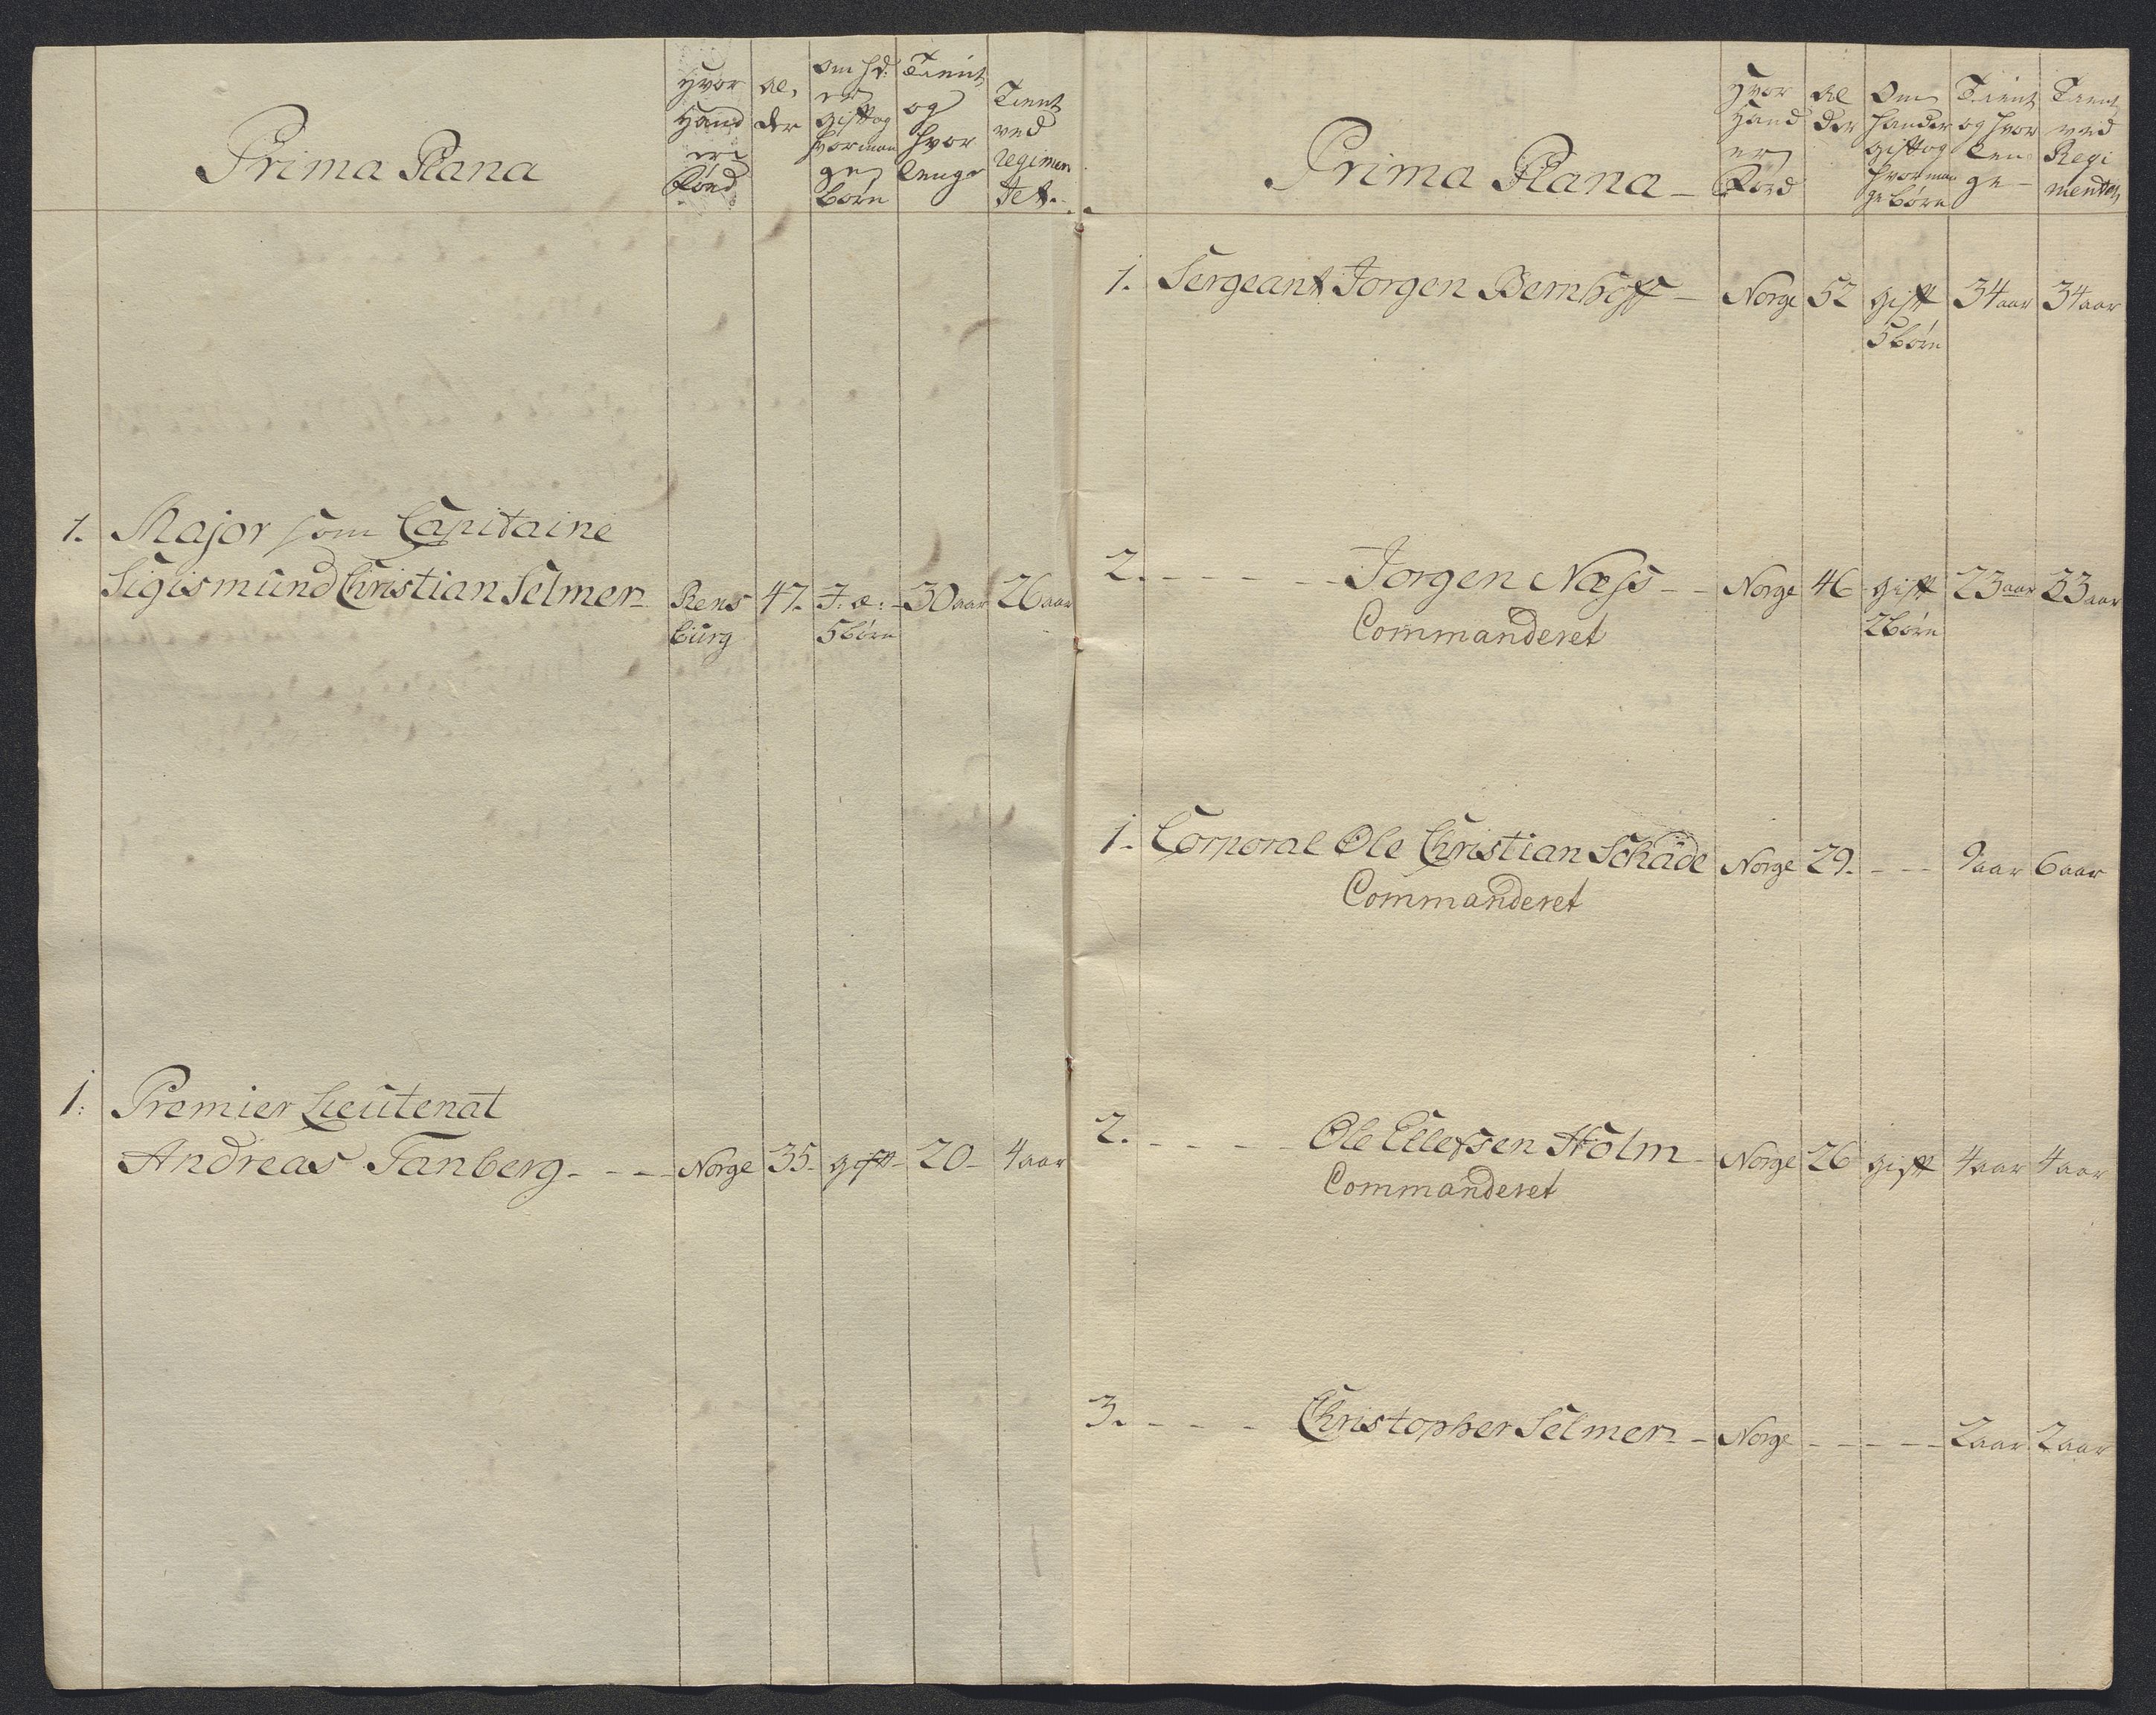 Prima Plana
Hvor Hand er Fød
Al, der
Om hd: er gift og hvor mange Børn
Tient og hvor lenge
Tient ved Regimen tet.
1. Major som Capitaine
Sigismund Christian Selmer Rens burg 47. J: æ: 5 børn 30 aar 26 aar
1. Premier Lieutenat
Andreas Tanberg Norge 35 gift 20 4 aar
Prima Plana
Hvor Hand er Fød
Al der
Om Hand er gift og hvor man ge børn
Tient og hvor len ge
Tient ved Regi mentet
1. Sergeant Jorgen Bernhoff Norge 52 gift 34 aar 34 aar
5 børn
2. Jorgen Næss Norge 46 gift 23 aar 23 aar
Commanderet 2 børn
1. Corporal Ole Christian Schäde Norge 29. 9 aar 6 aar
Commanderet
2. Ole Ellefsen Holm Norge 26 gift 4 aar 4 aar
Commanderet
3. Christopher Selmer Norge 2 aar 2 aar